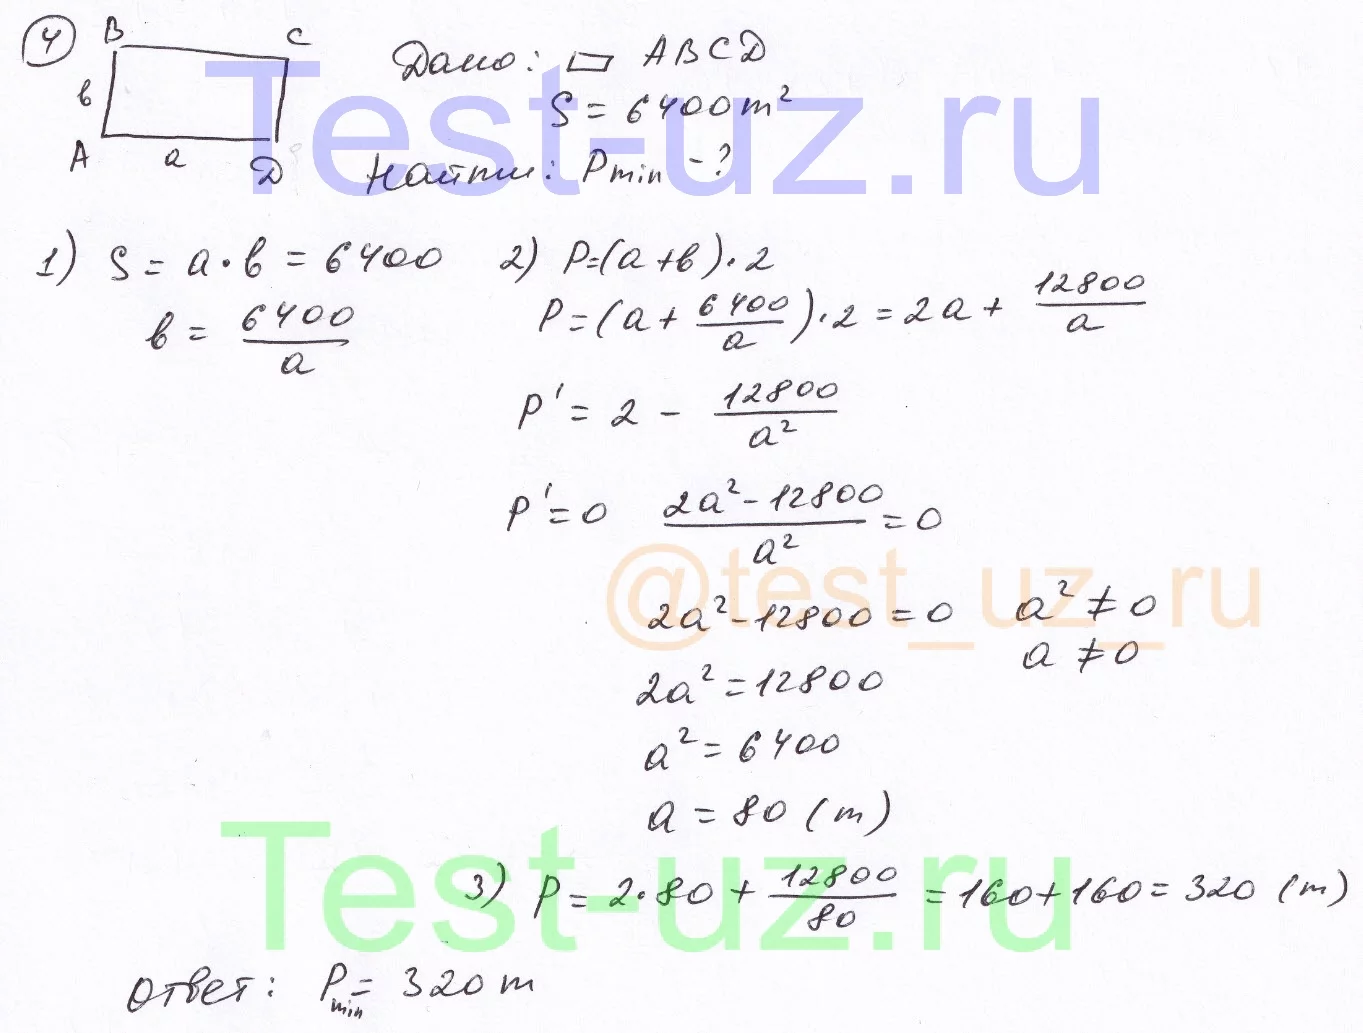 4
B C
Дано: ▱ ABCD
в
S = 6400 m²
A a D
Найти: Pmin - ?
Test-uz.ru
1) S = a · в = 6400
в = 6400/a
2) P = (a + в) · 2
P = (a + 6400/a) · 2 = 2a + 12800/a
P' = 2 - 12800/a²
P' = 0 (2a² - 12800)/a² = 0
@test_uz_ru
2a² - 12800 = 0 a² ≠ 0
a ≠ 0
2a² = 12800
a² = 6400
a = 80 (m)
Test-uz.ru
3) P = 2 · 80 + 12800/80 = 160 + 160 = 320 (m)
ответ: Pmin = 320 m